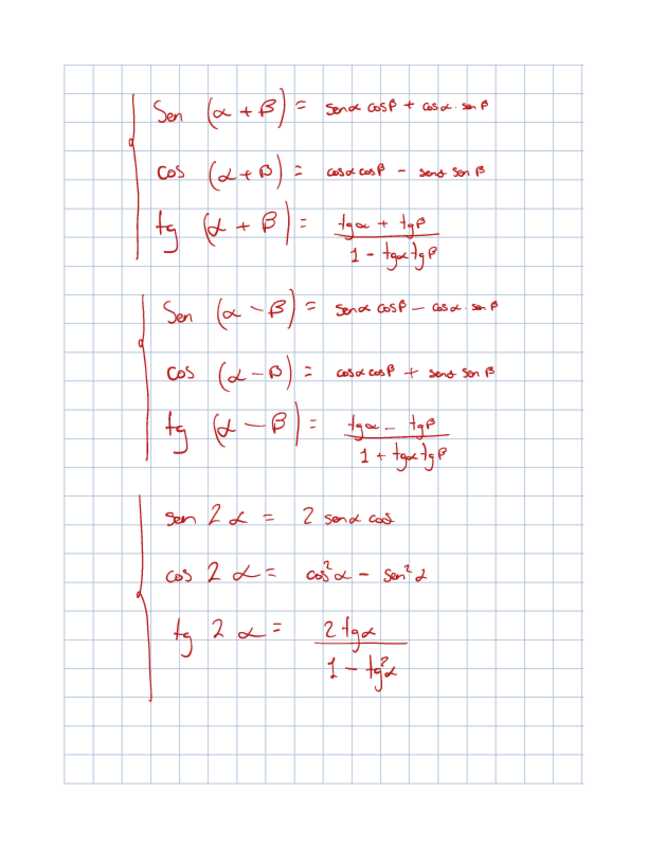 Sen (α + β) = senα cosβ + cosα · senβ
cos (α + β) = cosα cosβ − senα senβ
tg (α + β) = tgα + tgβ
1 − tgα tgβ
Sen (α − β) = senα cosβ − cosα · senβ
cos (α − β) = cosα cosβ + senα senβ
tg (α − β) = tgα − tgβ
1 + tgα tgβ
sen 2 α = 2 senα cosα
cos 2 α = cos²α − sen²α
tg 2 α = 2 tgα
1 − tg²α